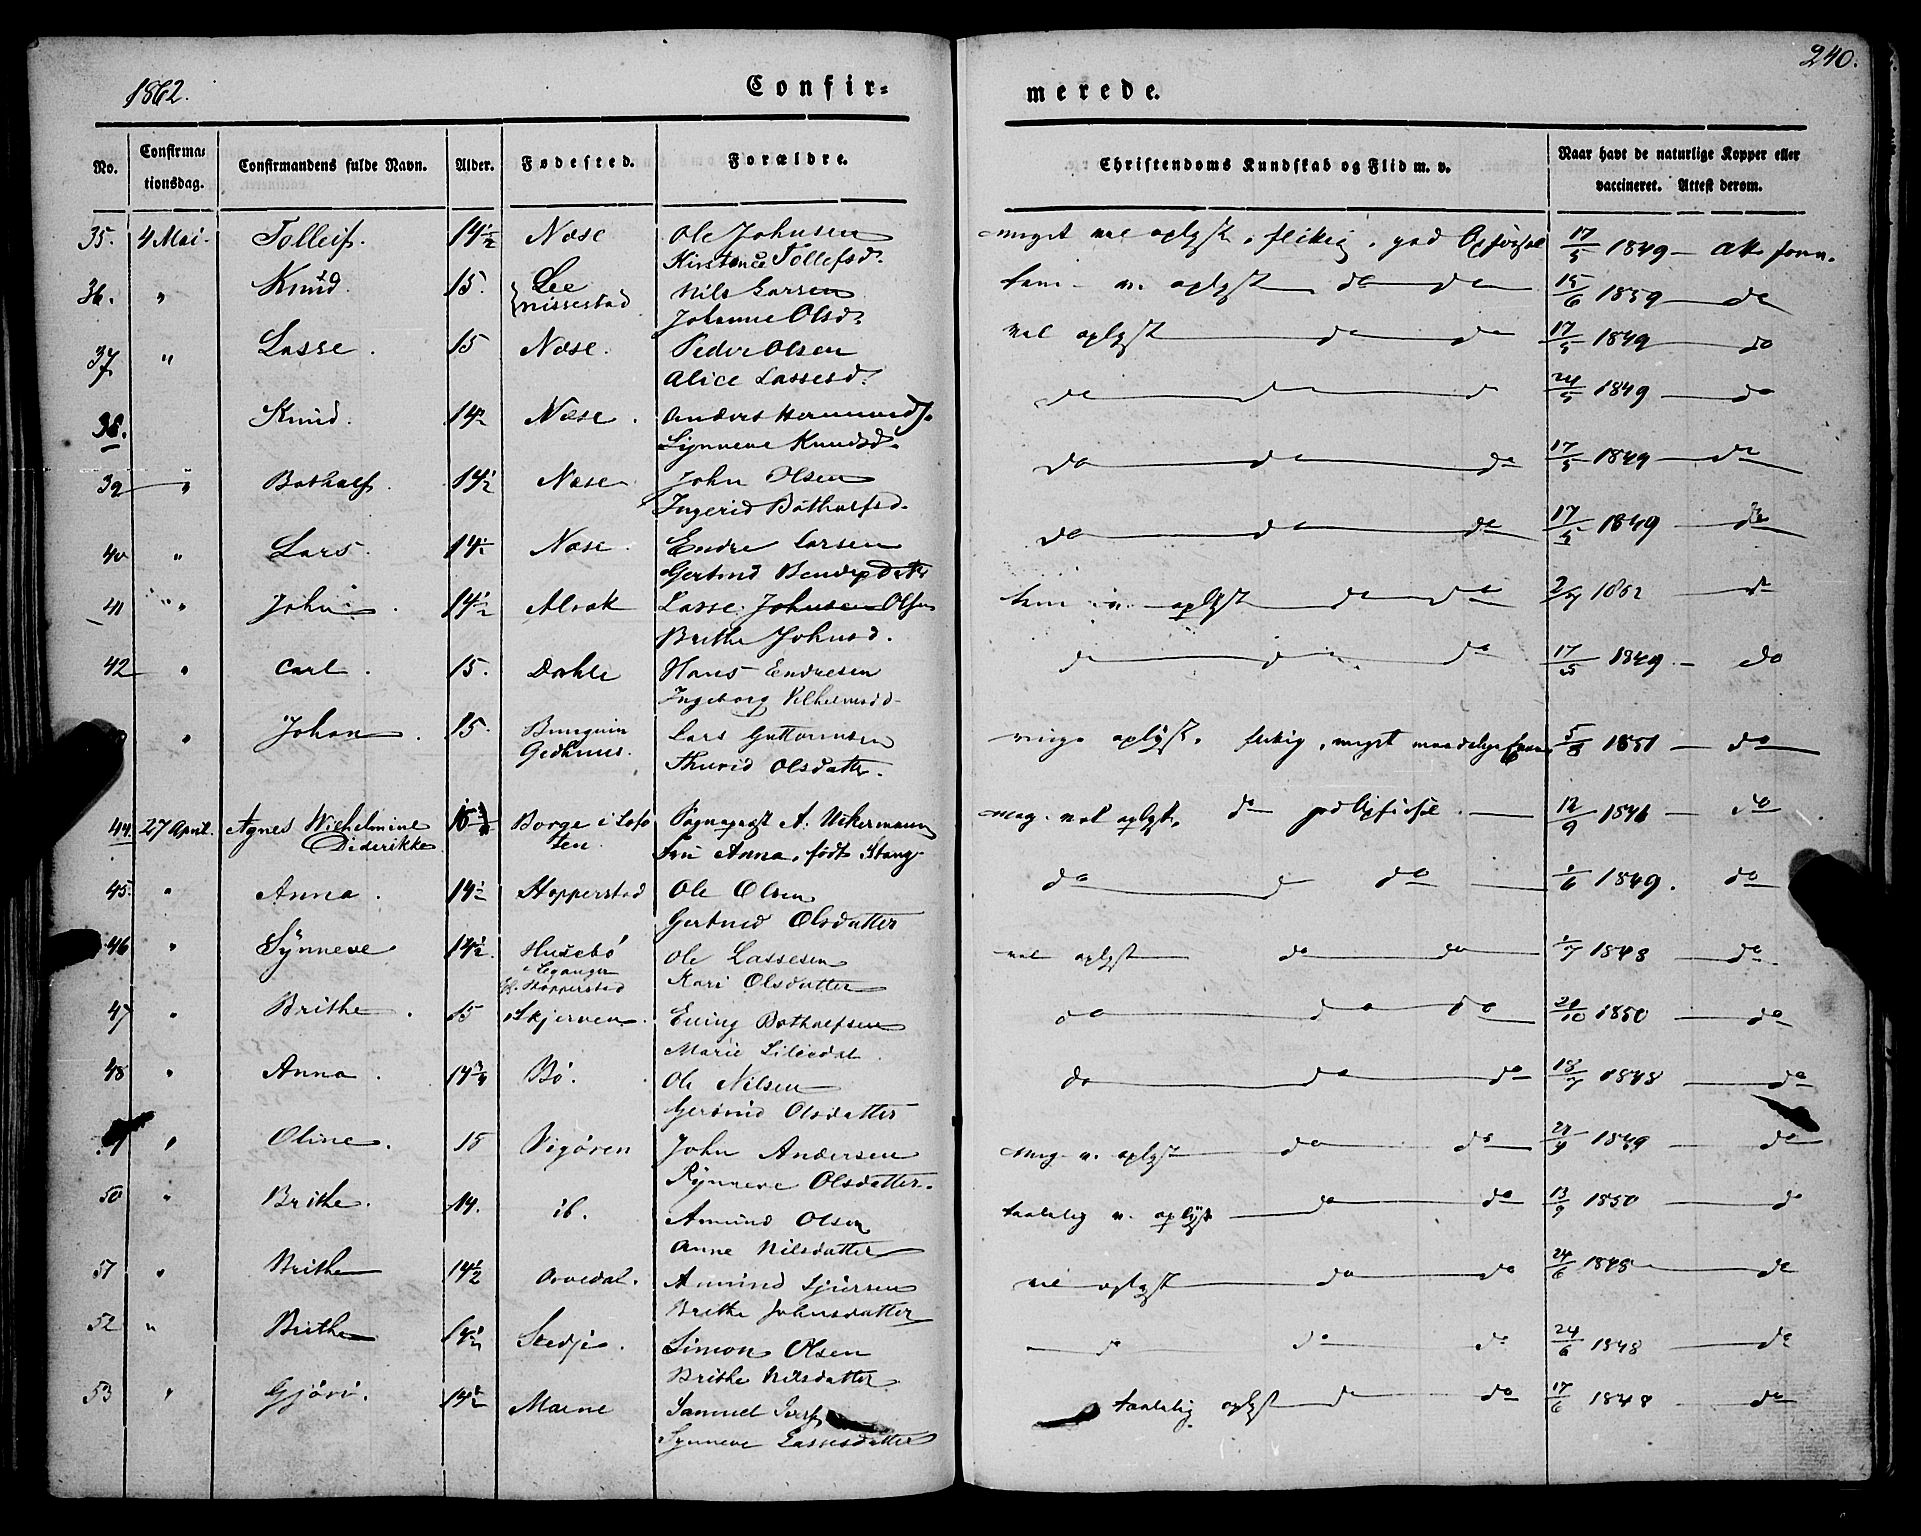 1862.
Confir-
merede.
240.
No.
Confirma-
tionsdag.
Confirmandens fulde Navn.
Alder.
Fødested.
Forældre.
Christendoms Kundskab og Flid m. v.
Naar havt de naturlige Kopper eller
vaccineret. Attest derom.
35. 4 Mai. Tolleif. 14½ Næse Ole Johnsen meget vel oplyst, flittig, god Opførsel 17/5 1849 —
Tollefsd.
36. " Knud. 15. Lee Nils Larsen v. oplyst do do 15/6 1859 — do
Nissestad Johanne Olsd.
37 " Lasse. 15 Næse. Peder Olsen vel oplyst do do 17/5 1849 — do
Alice Lassesd.
38. Knud. 14½ Næse. Anders do do d 24/5 1849 — do
Synneve Knudsd.
39 " Botholf. 14½ Næse John Olsen do do do 17/5 1849 — do
Ingerid Botholfsd.
40 " Lars. 14½ Næse. Endre Larsen do do do 17/5 1849 — do
Gertrud
41 " John. 14½ Alrak Lasse Johnsen Olsen v. oplyst do do 2/7 1862 do
Brithe Johnsd.
42 " Carl. 15. Dahle Hans Endresen d d do 17/5 1849. — do
Ingeborg Vilhelmsd.
" Johan. 15. Lars Guttormsen ringe oplyst, flittig, meget 5/8 1851 — do
Gedhuus. Thurid Olsdatter.
44. 27 April. Agnes Wilhelmine Borge i Lofo- Sognepræst A. Uchermann meg. vel oplyst, do god Opførsel. 12/9 1846 — do
Diderikke ten Fru Anna, født Stang
45. " Anna. 14½ Hopperstad Ole Olsen do d do 1/6 1849. do
Gertrud Olsdatter
46 " Synneve 14½ Husebø Ole Lassesen vel oplyst do do 1/7 1848 — do
i Leganger Kari Olsdatter
Hopperstad
47 " Brithe. 15 Skjerven. Elling Botholfsen do do do 20/10 1850 — do
Marie
48 " Anna. 14¾ Bø. Ole Nilsen do do do 18/7 1848 — do
Gertrud Olsdatter
" Oline. 15 Vigøren John Andersen meg. v. oplyst do do 1849 — do
Synneve Olsdatter.
50 " Brithe. 14. ib. Amund Olsen taalelig v. oplyst do do 13/9 1850 — do
Anne Nilsdatter
51 " Brithe 14½ Orvedal. Amund Sjursen vel oplyst do do 24/6 1848 — do
Brithe Johnsdatter
52 " Brithe 14½ Stedje. Simon Olsen do do do 24/6 1848 — do
Brithe Nilsdatter
53 " Gjøri. 14½ Marne Samuel taalelig oplyst do do 17/6 1848 — do
Synneve Lassesdatter